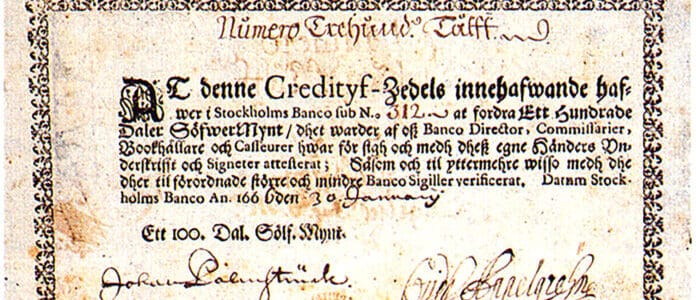 Numero Trehund. Tålfft
AT denne Credityf-Zedels innehafwande haf-
wer i Stockholms Banco sub N.o 312 at fordra Ett Hundrade
Daler SölfwerMynt / dhet warder af oß Banco Director, Commissarier,
Bookhållare och Casseurer hwar för sigh och medh dheß egne Händers Vn-
derskrifft och Signeter attesterat; Såsom och til yttermehre wisso medh dhe
dher til förordnade störrre och mindre Banco Sigiller verificerat. Datum Stock-
holms Banco An. 166 6 den 30 January
Ett 100. Dal. Sölf. Mynt.
Johan Palmstruck